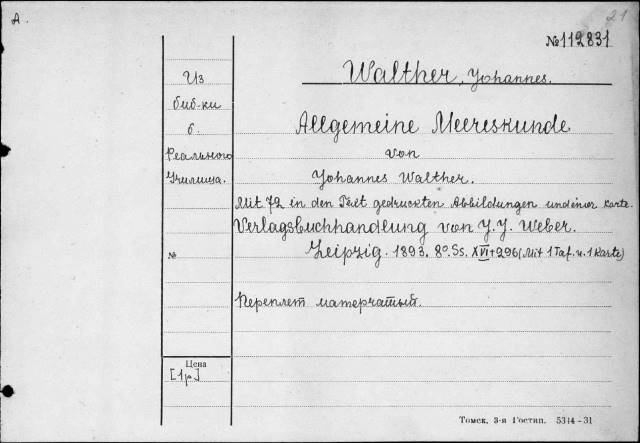 А.
21
№112831
Walther, Johannes.
Из
биб-ки
б.
Реального
Училища.
№
Цена
[1р]
Allgemeine Meereskunde
von
Johannes Walther.
Mit 72 in den Text gedruckten Abbildungen und einer Karte.
Verlagsbuchhandlung von J. J. Weber.
Leipzig. 1893. 8º. Ss. XVI+296 (Mit 1 Taf. u. 1 Karte)
Переплет матерчатый.
Томск, 3-я Гостип. 5314-31